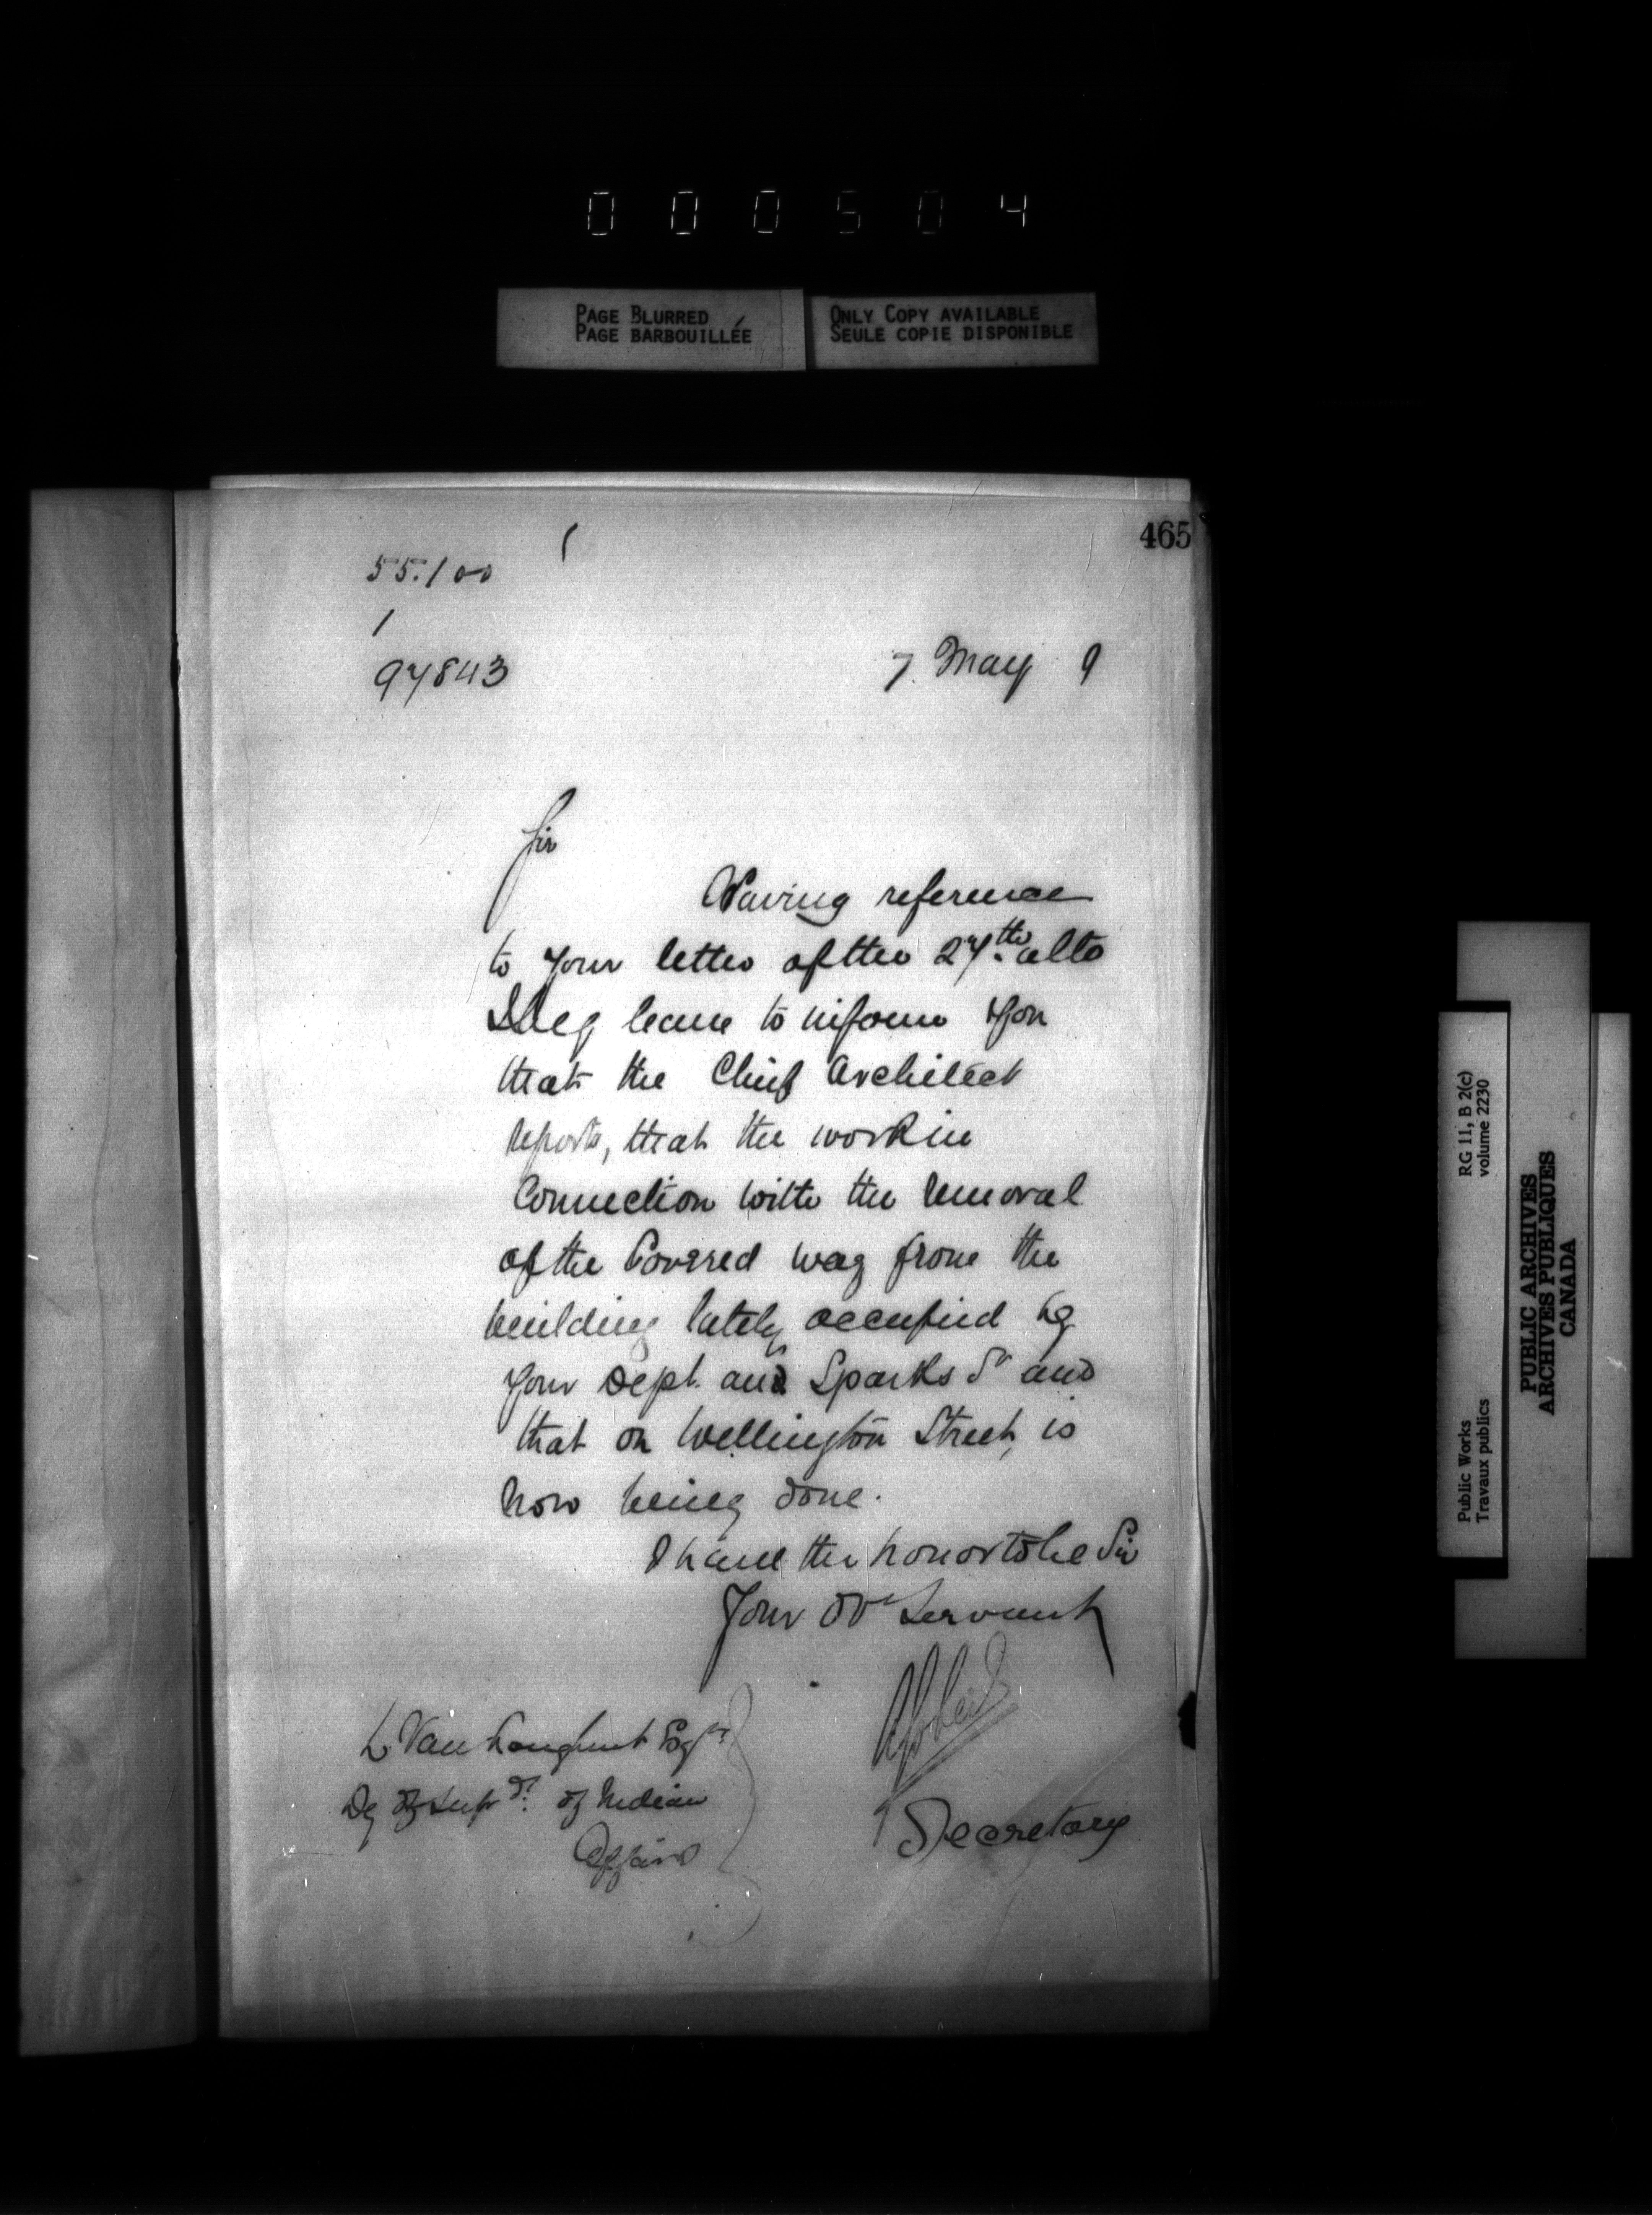 000504
PAGE BLURRED
PAGE BARBOUILLÉE
ONLY COPY AVAILABLE
SEULE COPIE DISPONIBLE
465
55.100
1
97843
7. May 9
Sir
Having reference
to your letter of the 27th. ulto
I beg leave to inform you
that the Chief Architect
reports, that the work in
Connection with the removal
of the Covered way from the
building lately occupied by
your Dept. and Sparks St and
that on Wellington Street, is
now being done.
I have the honor to be Sir
Your Obt Servant
Secretary
L. VanKoughnet Esqre
Dy of Supdt. of Indian
Affairs
RG 11, B 2(c)
volume 2230
Public Works
Travaux publics
PUBLIC ARCHIVES
ARCHIVES PUBLIQUES
CANADA